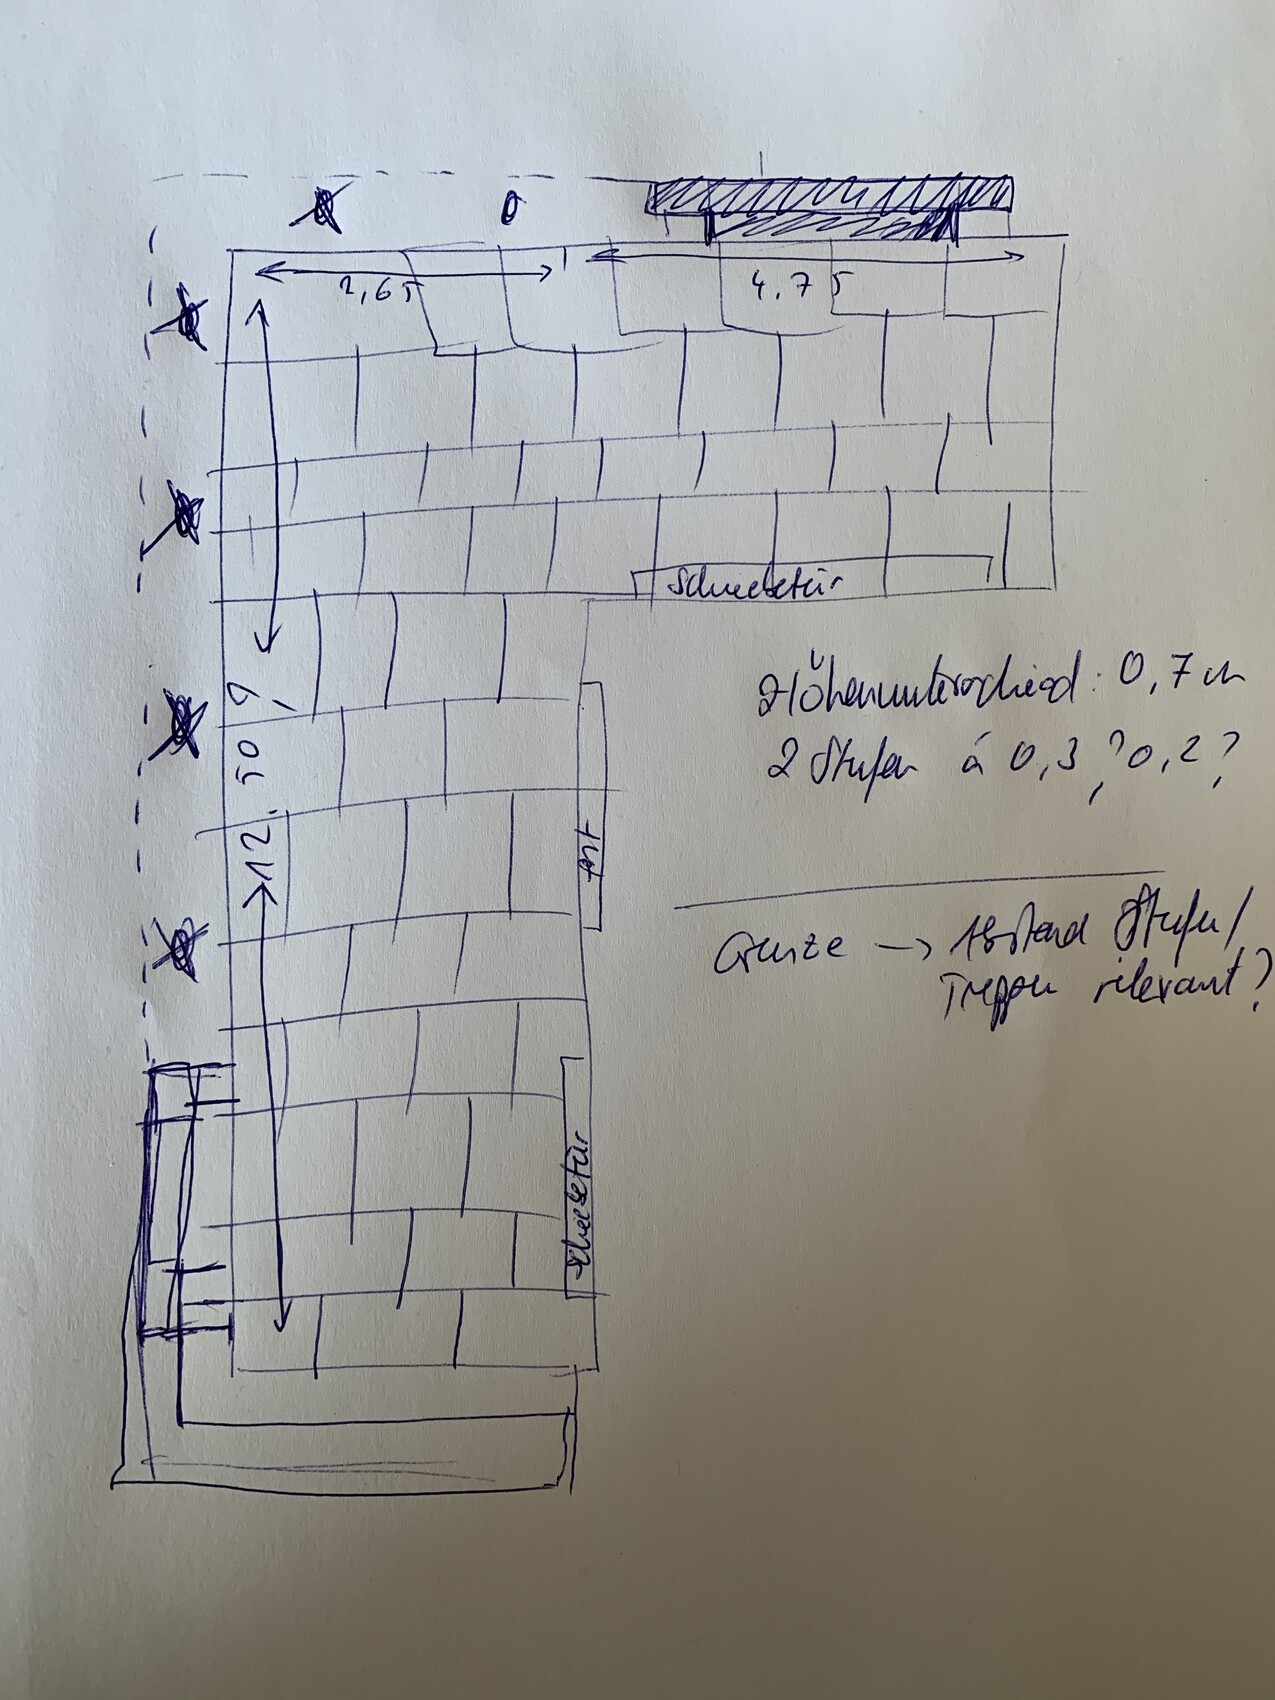 2,65
4,75
Schiebetür
12.50
Höhenunterschied: 0,7 m
2 Stufen á 0,3? 0,2?
Grenze → Abstand Stufen/
Treppen relevant?
Schiebetür